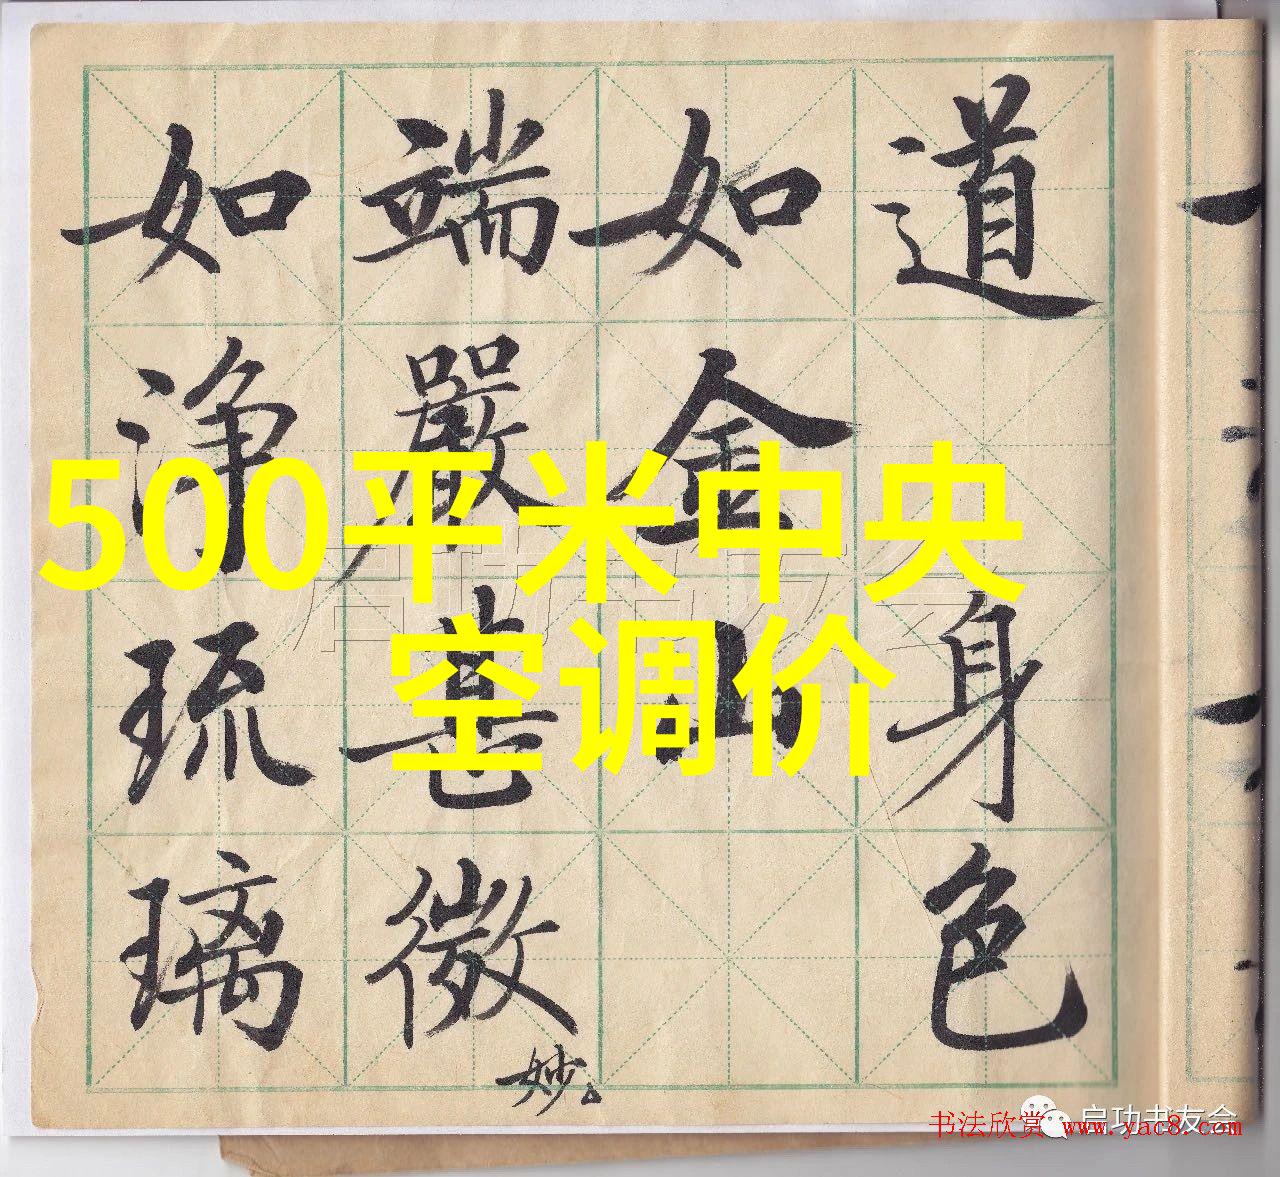 道身色
如金山
端嚴甚微妙
如淨琉璃
500平米中央
空调价
启功书友会
启功书友会
书法欣赏 www.yac8.com